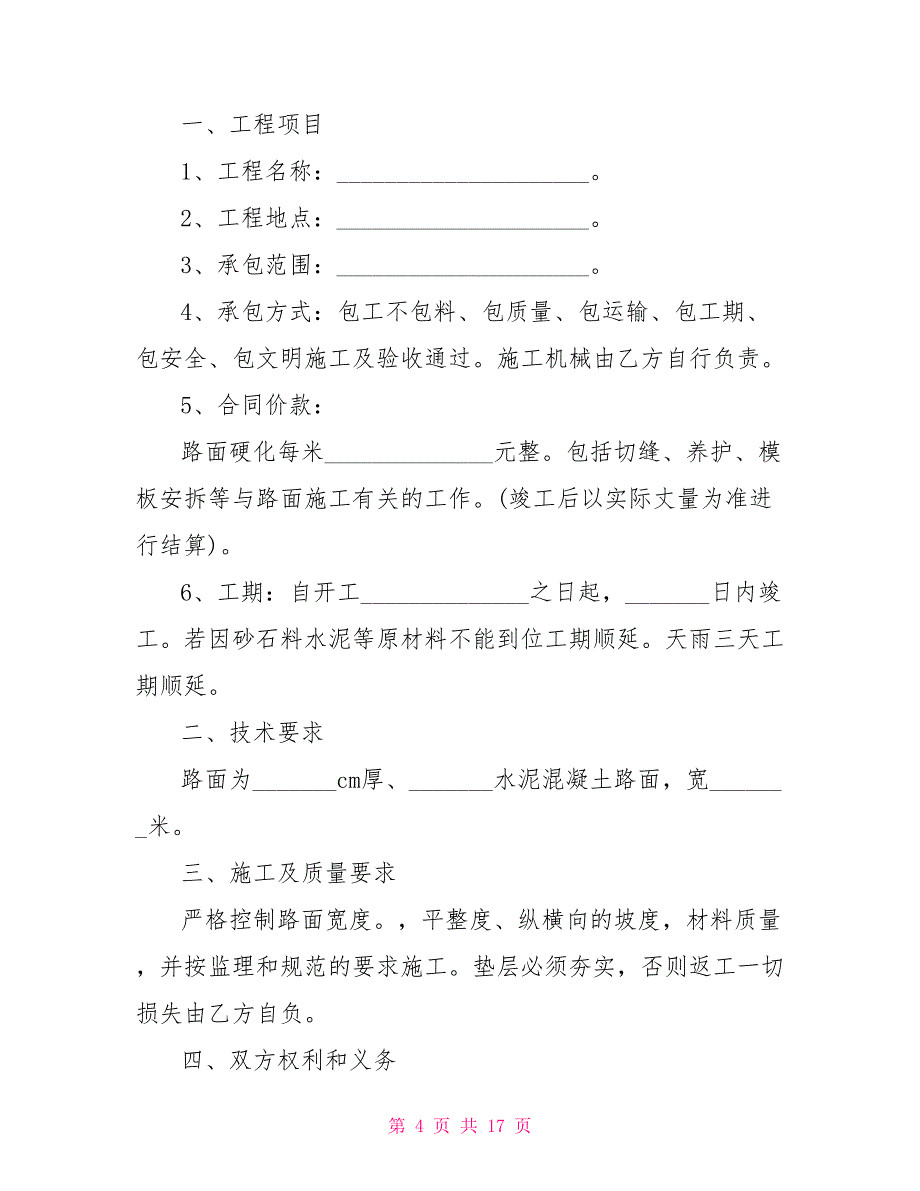 一、工程项目
1、工程名称：_____________________。
2、工程地点：_____________________。
3、承包范围：_____________________。
4、承包方式：包工不包料、包质量、包运输、包工期、
包安全、包文明施工及验收通过。施工机械由乙方自行负责。
5、合同价款：
路面硬化每米______________元整。包括切缝、养护、模
板安拆等与路面施工有关的工作。(竣工后以实际丈量为准进
行结算)。
6、工期：自开工______________之日起，_______日内竣
工。若因砂石料水泥等原材料不能到位工期顺延。天雨三天工
期顺延。
二、技术要求
路面为_______cm厚、_______水泥混凝土路面，宽______
_米。
三、施工及质量要求
严格控制路面宽度。，平整度、纵横向的坡度，材料质量
，并按监理和规范的要求施工。垫层必须夯实，否则返工一切
损失由乙方自负。
四、双方权利和义务
第 4 页 共 17 页